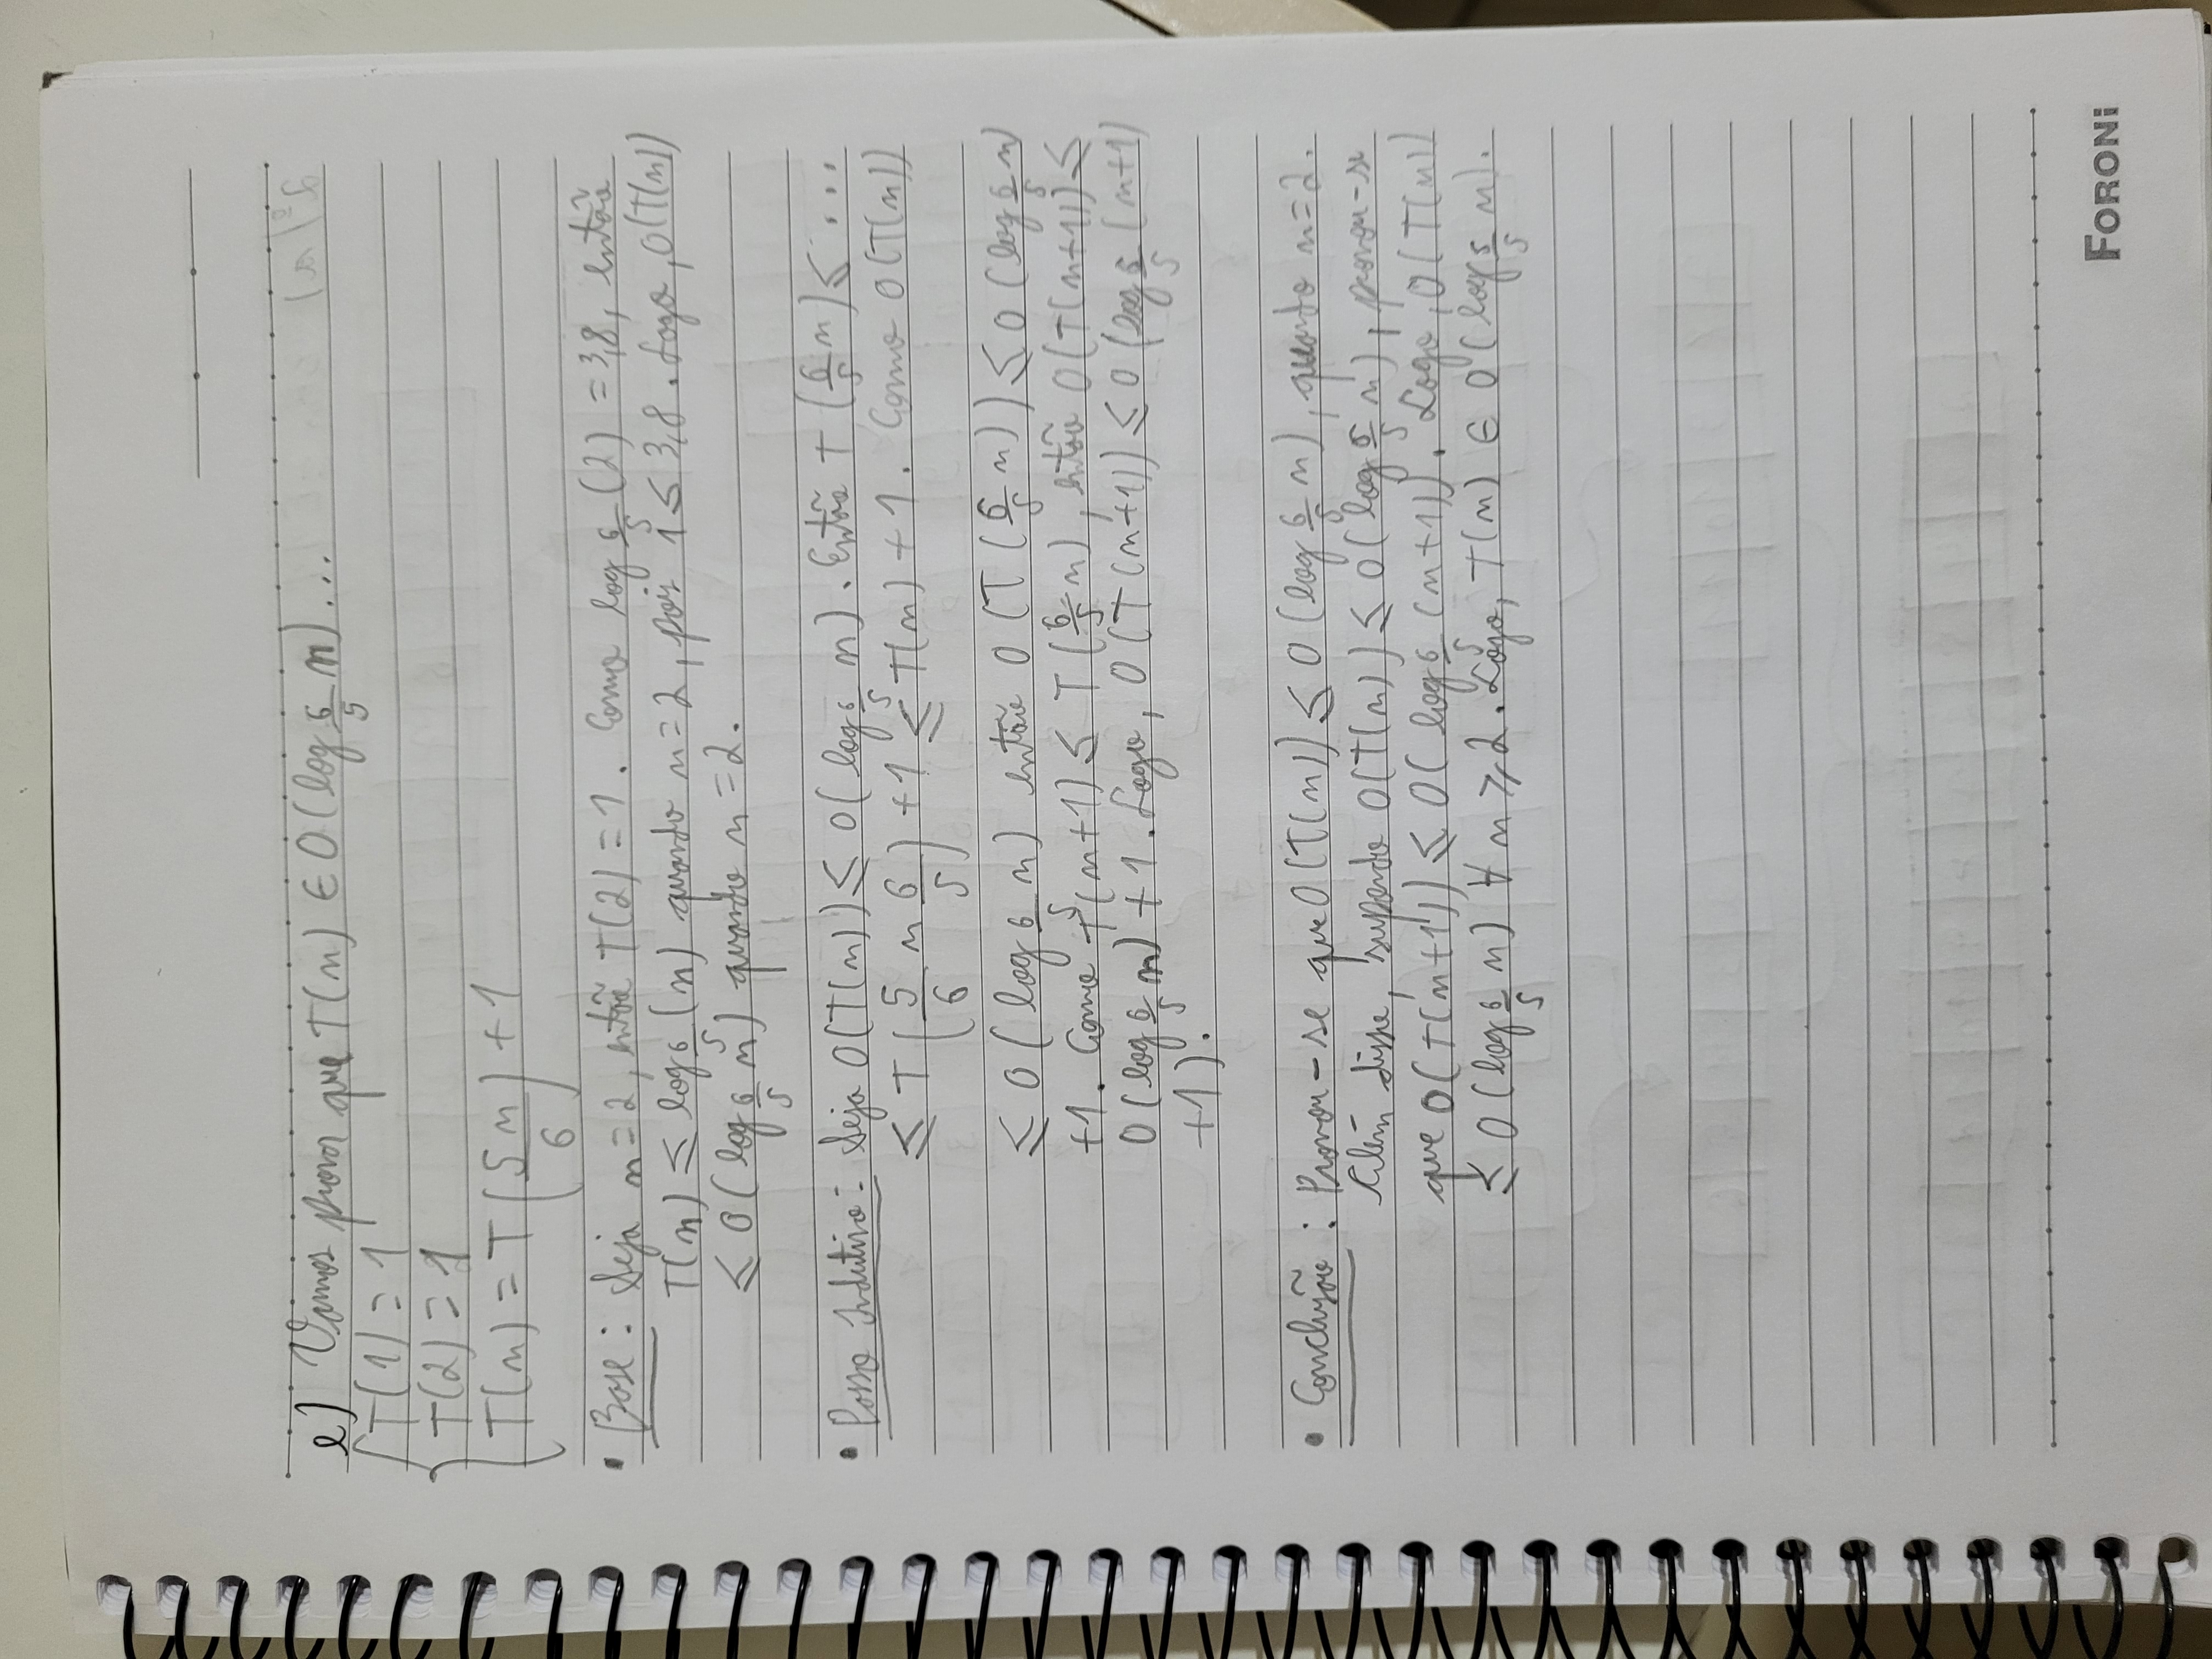 e) Vamos provar que T(n) ∈ O(log 6/5 n)...
T(1) = 1
T(2) = 1
T(n) = T(5n/6) + 1
• Base: Seja n=2, então T(2) = 1. Como log 6/5 (2) = 3,8, então
T(n) ≤ log 6/5 (n) quando n=2, pois 1 ≤ 3,8. Logo, O(T(n))
≤ O(log 6/5 n) quando n=2.
• Passo Indutivo: Seja O(T(n)) ≤ O(log 6/5 n). Então T(6/5 n) ≤ ...
≤ T(5/6 n 6/5) + 1 ≤ T(n) + 1. Como O(T(n))
≤ O(log 6/5 n) então O(T(6/5 n)) ≤ O(log 6/5 n)
+1. Como T(n+1) ≤ T(6/5 n), então O(T(n+1)) ≤
O(log 6/5 n) + 1. Logo, O(T(n+1)) ≤ O(log 6/5 (n+1)
+1).
• Conclusão: Provou-se que O(T(n)) ≤ O(log 6/5 n), quando n=2.
Além disso, supondo O(T(n)) ≤ O(log 6/5 n), provou-se
que O(T(n+1)) ≤ O(log 6/5 (n+1)). Logo, O(T(n))
≤ O(log 6/5 n) ∀ n ≥ 2. Logo, T(n) ∈ O(log 6/5 n).
FORONi